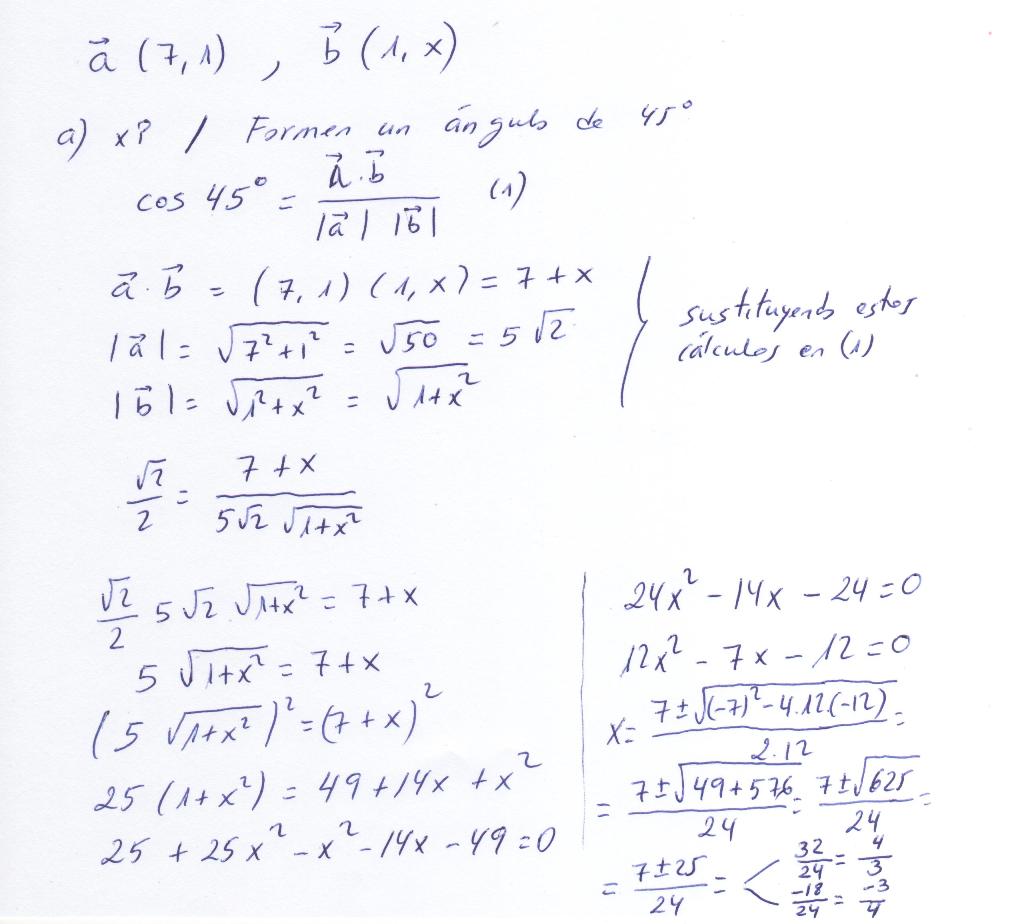 a⃗ (7,1) , b⃗ (1, x)
a) x? / Formen un ángulo de 45°
cos 45° = a⃗·b⃗ / |a⃗| |b⃗| (1)
a⃗·b⃗ = (7,1) (1,x) = 7+x
|a⃗| = √(7²+1²) = √50 = 5√2
|b⃗| = √(1²+x²) = √(1+x²)
sustituyendo estos
cálculos en (1)
√2/2 = (7+x) / (5√2 √(1+x²))
√2/2 5√2 √(1+x²) = 7+x
5 √(1+x²) = 7+x
(5 √(1+x²))² = (7+x)²
25 (1+x²) = 49+14x+x²
25 + 25x² - x² - 14x - 49 = 0
24x² - 14x - 24 = 0
12x² - 7x - 12 = 0
x = (7 ± √((-7)² - 4.12.(-12))) / 2.12 =
= (7 ± √(49+576)) / 24 = (7 ± √625) / 24 =
= (7 ± 25) / 24 = < 32/24 = 4/3
-18/24 = -3/4